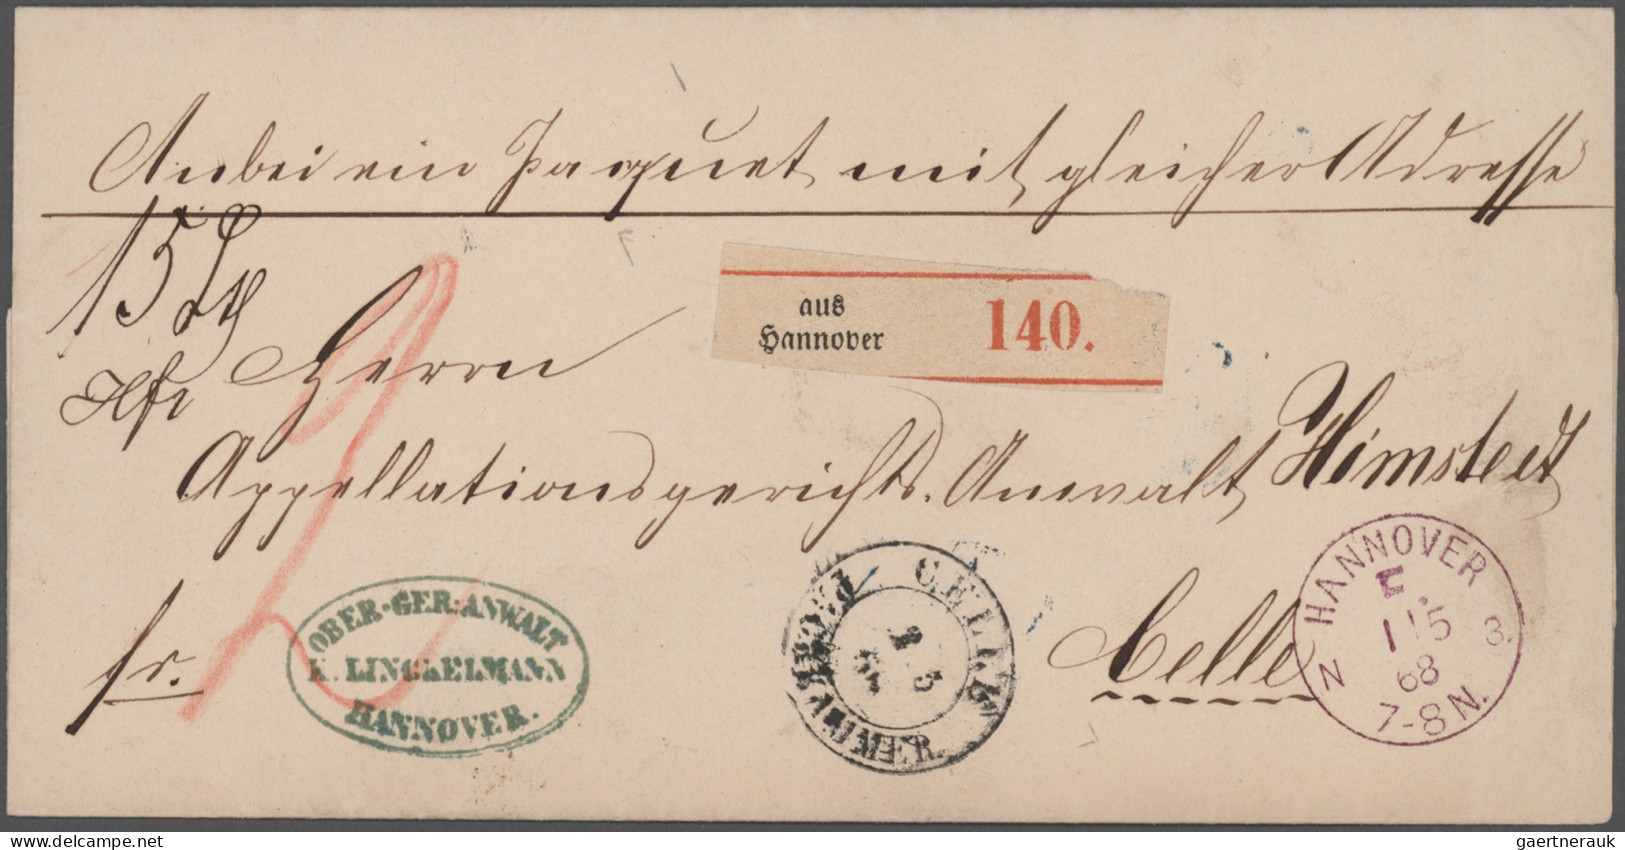 Anbei ein Paquet mit gleicher Adresse
15 Lth
aus
Hannover
140.
Herrn
Appellationsgerichts-Anwalt Himstedt
Celle
fr.
OBER-GER:ANWALT
K. LINCKELMANN
HANNOVER.
CELLE
HANNOVER
1 5
68
7-8 N.
N 3.
gaertnerauk